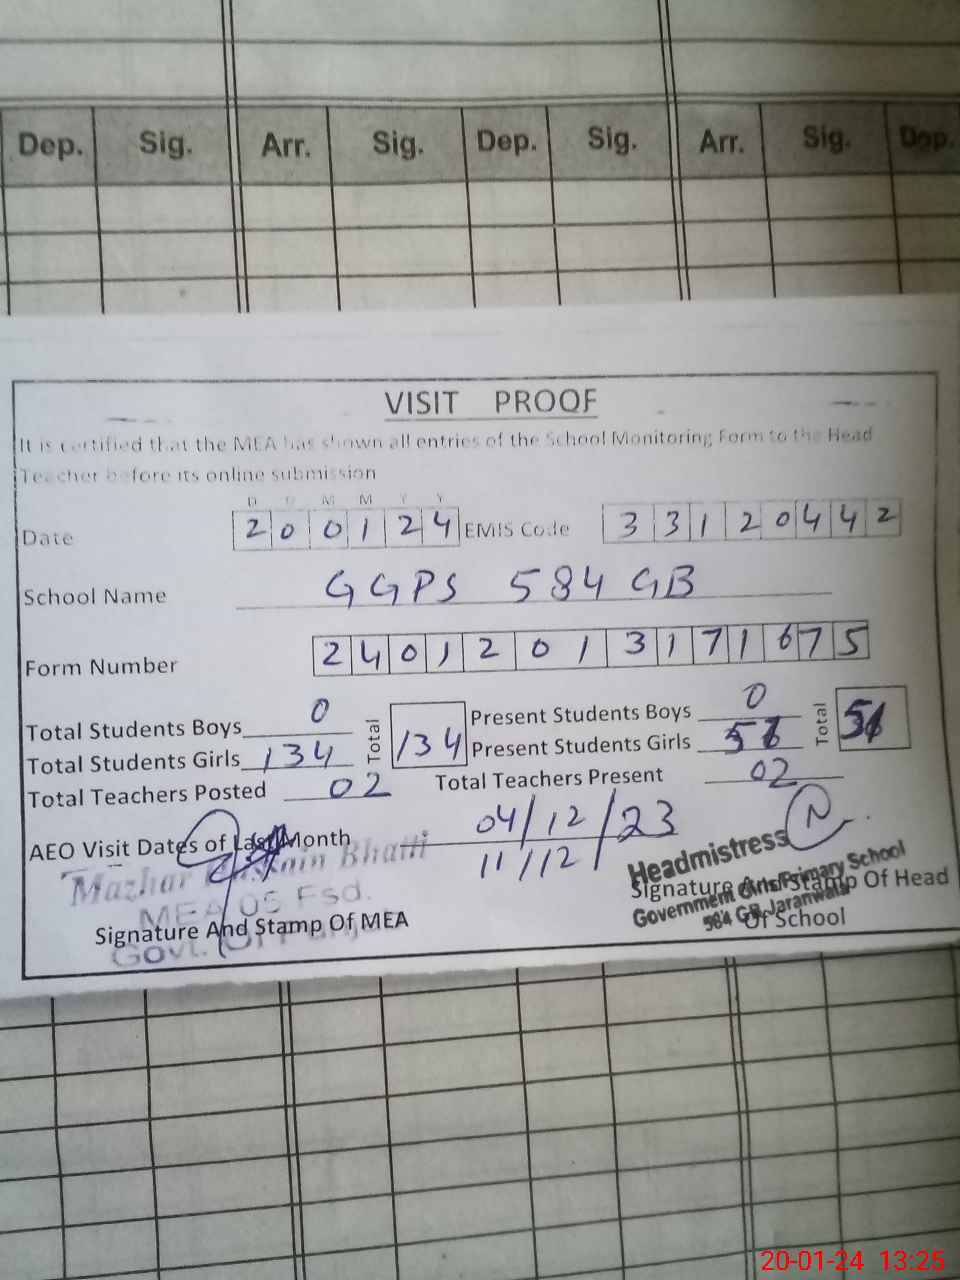 Dep. Sig. Arr. Sig. Dep. Sig. Arr. Sig. Dep.
VISIT PROOF
It is certified that the MEA has shown all entries of the School Monitoring Form to the Head
Teacher before its online submission
D D M M Y Y
Date 200124 EMIS Code 33120442
School Name GGPS 584 GB
Form Number 24012013171675
Total Students Boys 0 Total 134 Present Students Boys 0 Total
Total Students Girls 134 Present Students Girls
Total Teachers Posted 02 Total Teachers Present 02
AEO Visit Dates of Last Month 04/12/23
11/12/
Mazhar Hussain Bhatti
MEA 05 Fsd.
Signature And Stamp Of MEA
Govt. Of Punjab
Headmistress
Signature And Stamp Of Head
Government Girls Primary School
584 GB Jaranwala
Of School
20-01-24 13:25